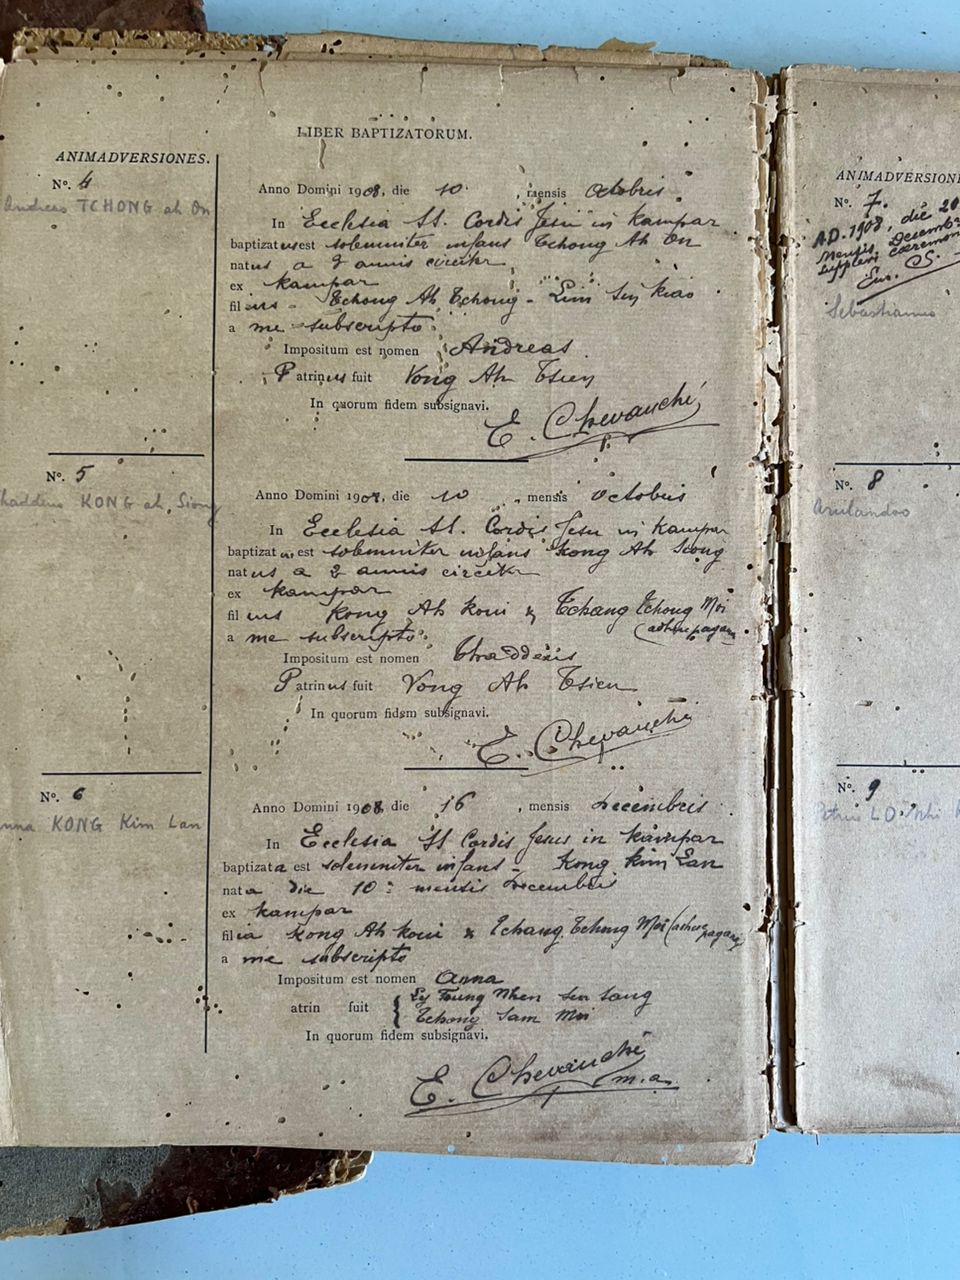 LIBER BAPTIZATORUM.
ANIMADVERSIONES.
Nº. 4
Andreas TCHONG ah On
Anno Domini 1908, die 10 mensis Octobris
In Ecclesia SS. Cordis Jesu in Kampar
baptizatus est solemniter infans Tchong Ah On
natus a 2 annis circiter
ex Kampar
filius Tchong Ah Tchong - Lim Sen Kiao
a me subscripto
Impositum est nomen Andreas
Patrinus fuit Vong Ah Tsien
In quorum fidem subsignavi.
E. Chevauché
Nº. 5
haddeus KONG ah Siong
Anno Domini 1908, die 10, mensis Octobris
In Ecclesia SS. Cordis Jesu in Kampar
baptizatus est solemniter infans Kong Ah Siong
natus a 2 annis circiter
ex Kampar
filius Kong Ah Koui & Tchang Tchong Moi
(adhuc pagan
a me subscripto
Impositum est nomen Thaddeus
Patrinus fuit Vong Ah Tsien
In quorum fidem subsignavi.
E. Chevauché
Nº. 6
nna KONG Kim Lan
Anno Domini 1908 die 16, mensis Decembris
In Ecclesia SS Cordis Jesus in Kampar
baptizata est solemniter infans - Kong Kim Lan
nata die 10 mensis Decembris
ex Kampar
filia Kong Ah Koui & Tchang Tchong Moi (adhuc pagan
a me subscripto
Impositum est nomen Anna
atrin fuit { Ly Toung Nhen Sen Sang
Tchong Sam Moi
In quorum fidem subsignavi.
E. Chevauché
m.a.
ANIMADVERSION
Nº. 7.
A.D. 1908, die 20
Mensis Decemb
supplevi cæremon
Sebastianus
Nº. 8
Arulandoo
Nº. 9
Petrus LO